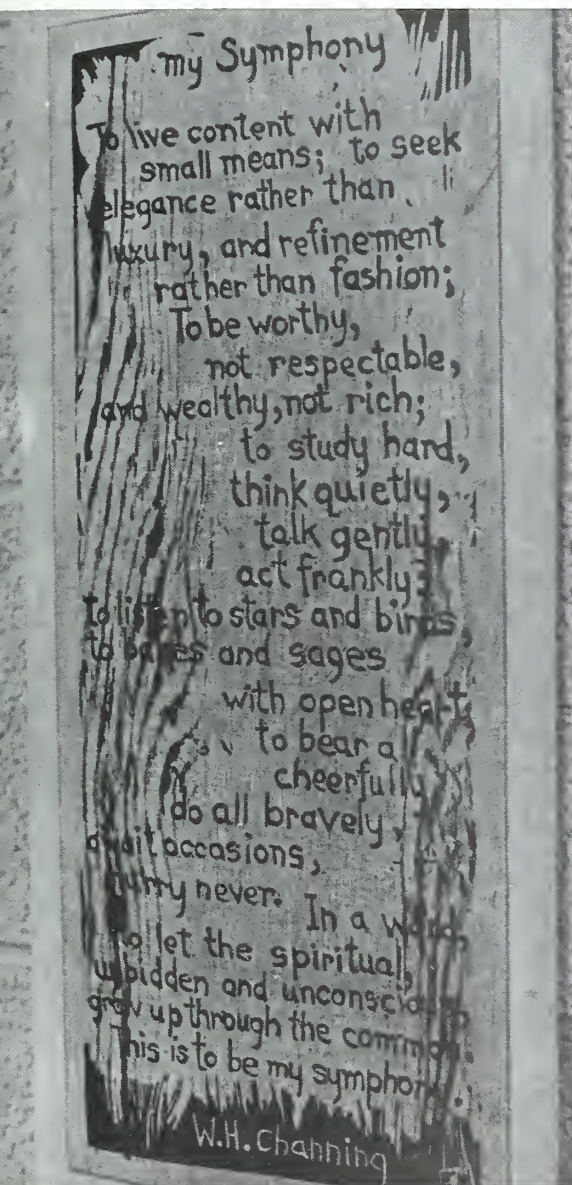 my Symphony
To live content with
small means; to seek
elegance rather than
luxury, and refinement
rather than fashion;
To be worthy,
not respectable,
and wealthy, not rich;
to study hard,
think quietly,
talk gently,
act frankly;
to listen to stars and birds,
to babes and sages
with open heart,
to bear all
cheerfully,
do all bravely,
await occasions,
hurry never. In a word,
to let the spiritual,
unbidden and unconscious,
grow up through the common.
This is to be my symphony.
W.H. Channing